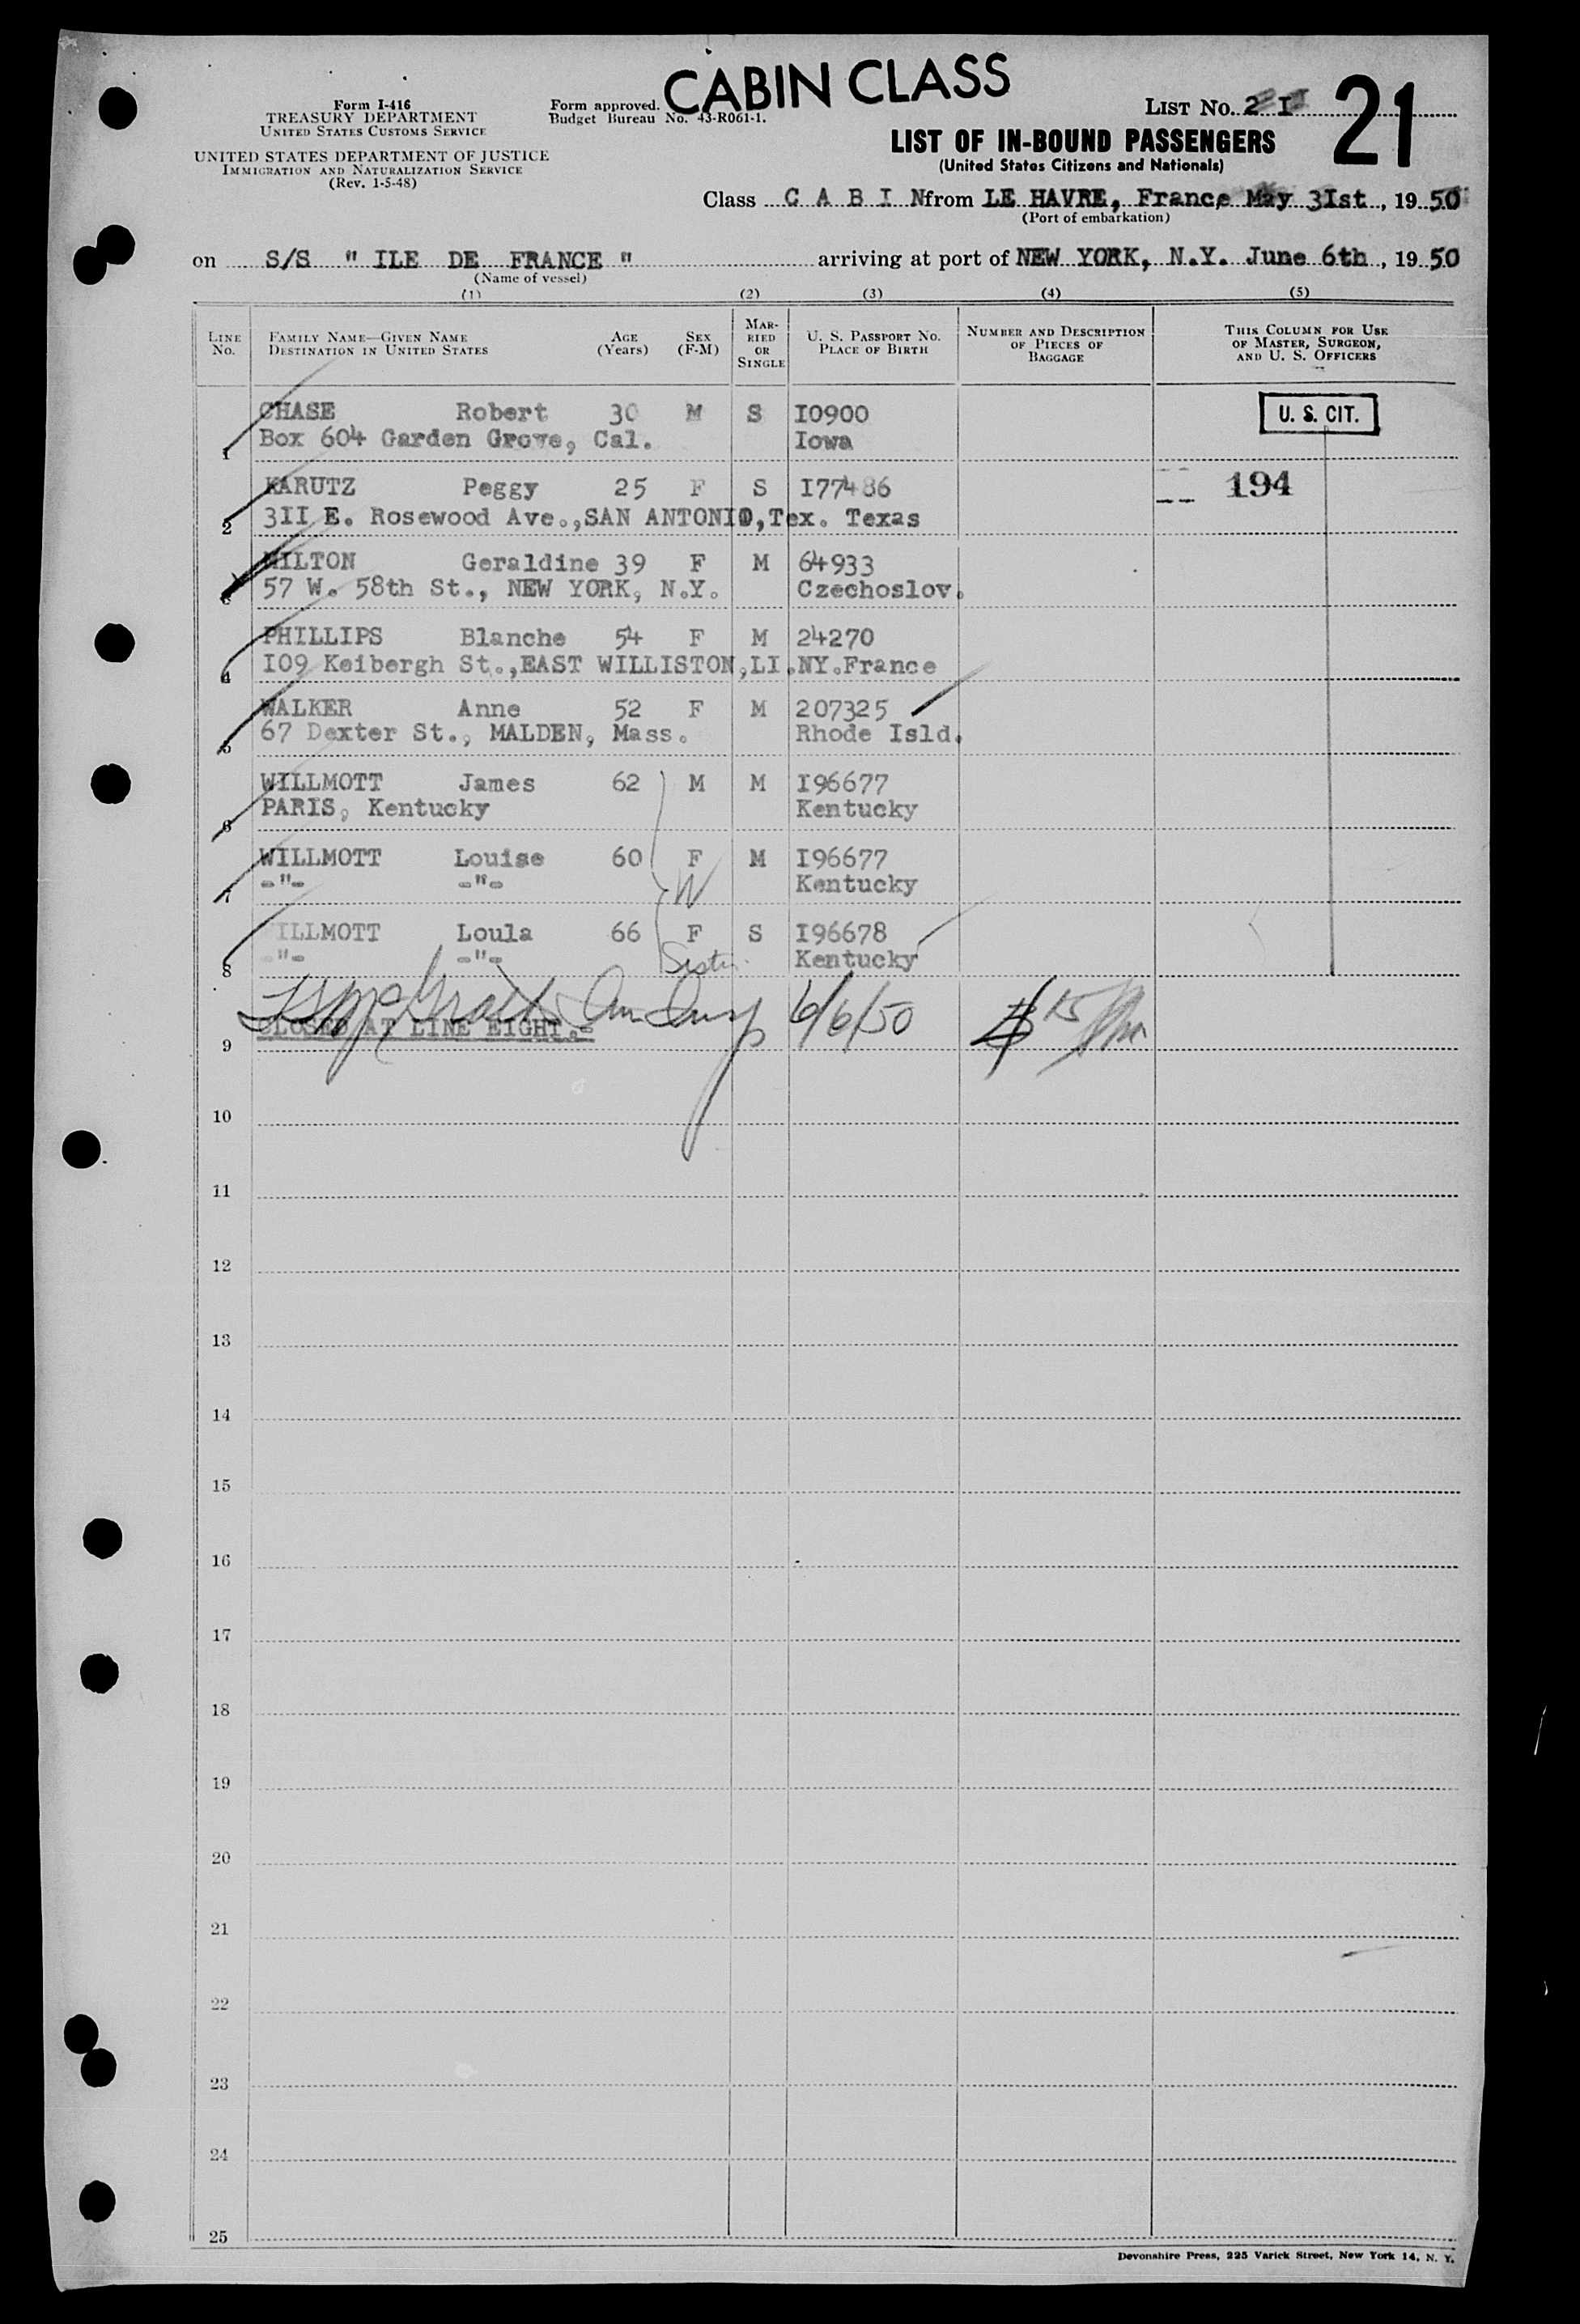 CABIN CLASS
Form I-416
TREASURY DEPARTMENT
UNITED STATES CUSTOMS SERVICE
UNITED STATES DEPARTMENT OF JUSTICE
IMMIGRATION AND NATURALIZATION SERVICE
(Rev. 1-5-48)
Form approved.
Budget Bureau No. 43-R061-1.
LIST NO. 2 I 21
LIST OF IN-BOUND PASSENGERS
(United States Citizens and Nationals)
Class C A B I N from LE HAVRE, France May 3Ist, 1950
(Port of embarkation)
on S/S " ILE DE FRANCE " arriving at port of NEW YORK, N.Y. June 6th, 1950
(Name of vessel)
(1) (2) (3) (4) (5)
LINE NO. FAMILY NAME—GIVEN NAME DESTINATION IN UNITED STATES AGE (Years) SEX (F-M) MARRIED OR SINGLE U. S. PASSPORT NO. PLACE OF BIRTH NUMBER AND DESCRIPTION OF PIECES OF BAGGAGE THIS COLUMN FOR USE OF MASTER, SURGEON, AND U. S. OFFICERS
CHASE Robert 30 M S I0900 U. S. CIT.
1 Box 604 Garden Grove, Cal. Iowa
KARUTZ Peggy 25 F S I77486 194
2 3II E. Rosewood Ave.,SAN ANTONIO,Tex. Texas
MILTON Geraldine 39 F M 64933
3 57 W. 58th St., NEW YORK, N.Y. Czechoslov.
PHILLIPS Blanche 54 F M 24270
4 I09 Keibergh St.,EAST WILLISTON,LI.NY.France
WALKER Anne 52 F M 207325
5 67 Dexter St., MALDEN, Mass. Rhode Isld.
WILLMOTT James 62 M M I96677
6 PARIS, Kentucky Kentucky
WILLMOTT Louise 60 F M I96677
7 -"- -"- W Kentucky
WILLMOTT Loula 66 F S I96678
8 -"- -"- Sister Kentucky
6/6/50
9 CLOSED AT LINE EIGHT.-
10
11
12
13
14
15
16
17
18
19
20
21
22
23
24
25
Devonshire Press, 225 Varick Street, New York 14, N. Y.